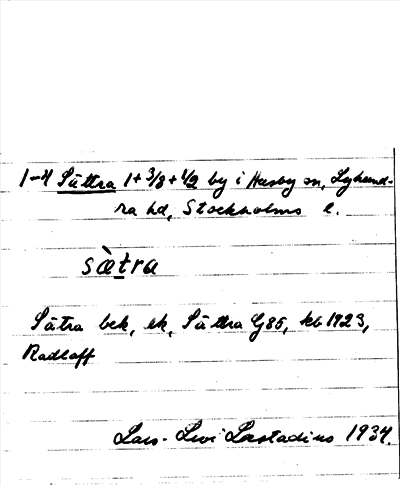 1-4 Sättra 1+3/8+1/2 by i Husby sn, Lyhund-
ra hd, Stockholms l.
sàtra
Sätra bek, ek, Sättra G85, kb 1923,
Radloff
Lars-Levi Læstadius 1934.